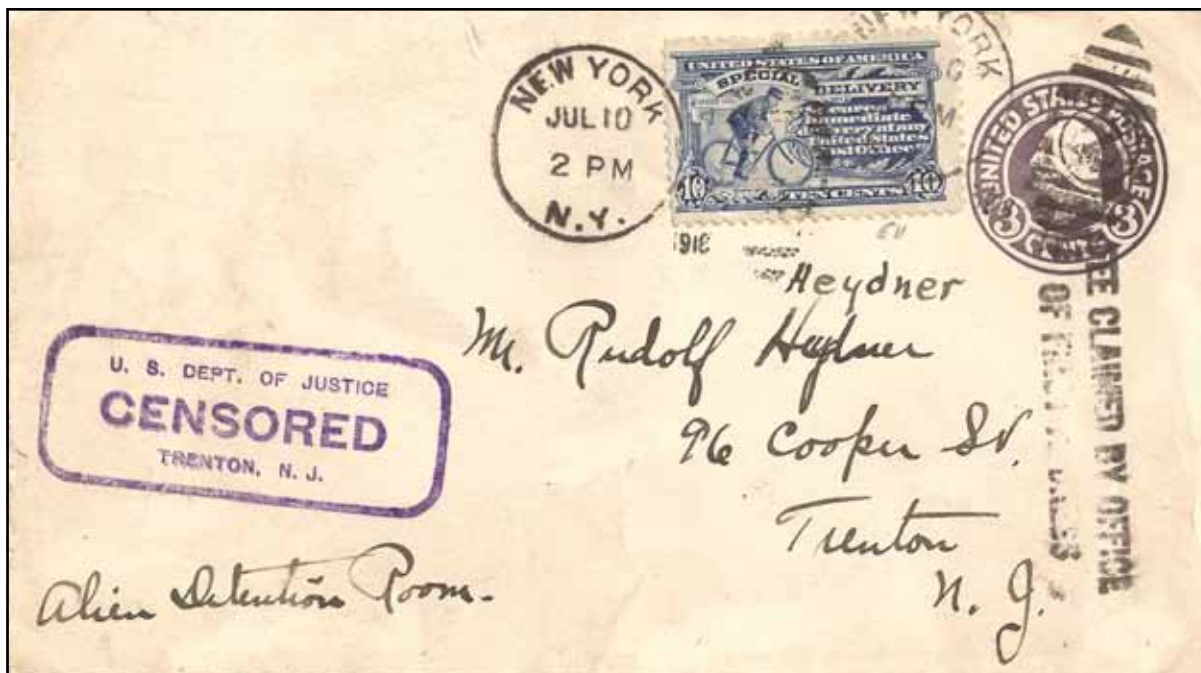 NEW YORK
JUL 10
2 PM
N.Y.
1918
NEW YORK
UNITED STATES OF AMERICA
SPECIAL DELIVERY
Secures
immediate
delivery at any
United States
Post Office
10 TEN CENTS 10
UNITED STATES POSTAGE
3 CENTS 3
FEE CLAIMED BY OFFICE
OF FIRST ADDRESS
Heydner
Mr. Rudolf Heydner
96 Cooper St.
Trenton
N. J.
U. S. DEPT. OF JUSTICE
CENSORED
TRENTON, N. J.
Alien Detention Room.